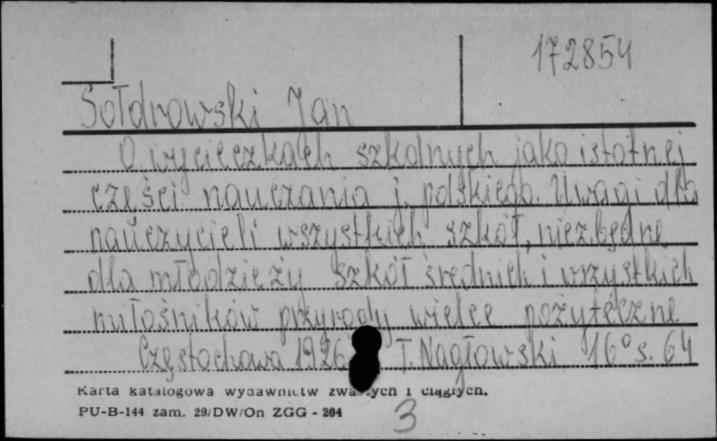 172854
Sołdrowski Jan
O wycieczkach szkolnych jako istotnej
części nauczania j. polskiego. Uwagi dla
nauczycieli wszystkich szkół, niezbędne
dla młodzieży szkół średnich i wszystkich
miłośników przyrody wielce pożyteczne
Częstochowa 1926 T. Nagłowski 16° s. 64
Karta katalogowa wydawnictw zwartych i ciągłych.
PU-B-144 zam. 29/DW/On ZGG - 204
3